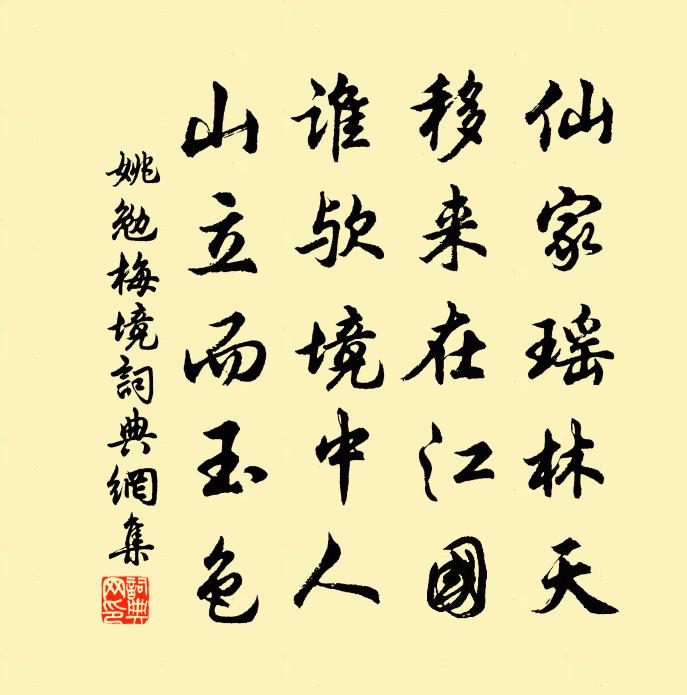 仙家瑶林天
移来在江國
谁欤境中人
山立而玉色
姚勉梅境詞典網集
詞典網印